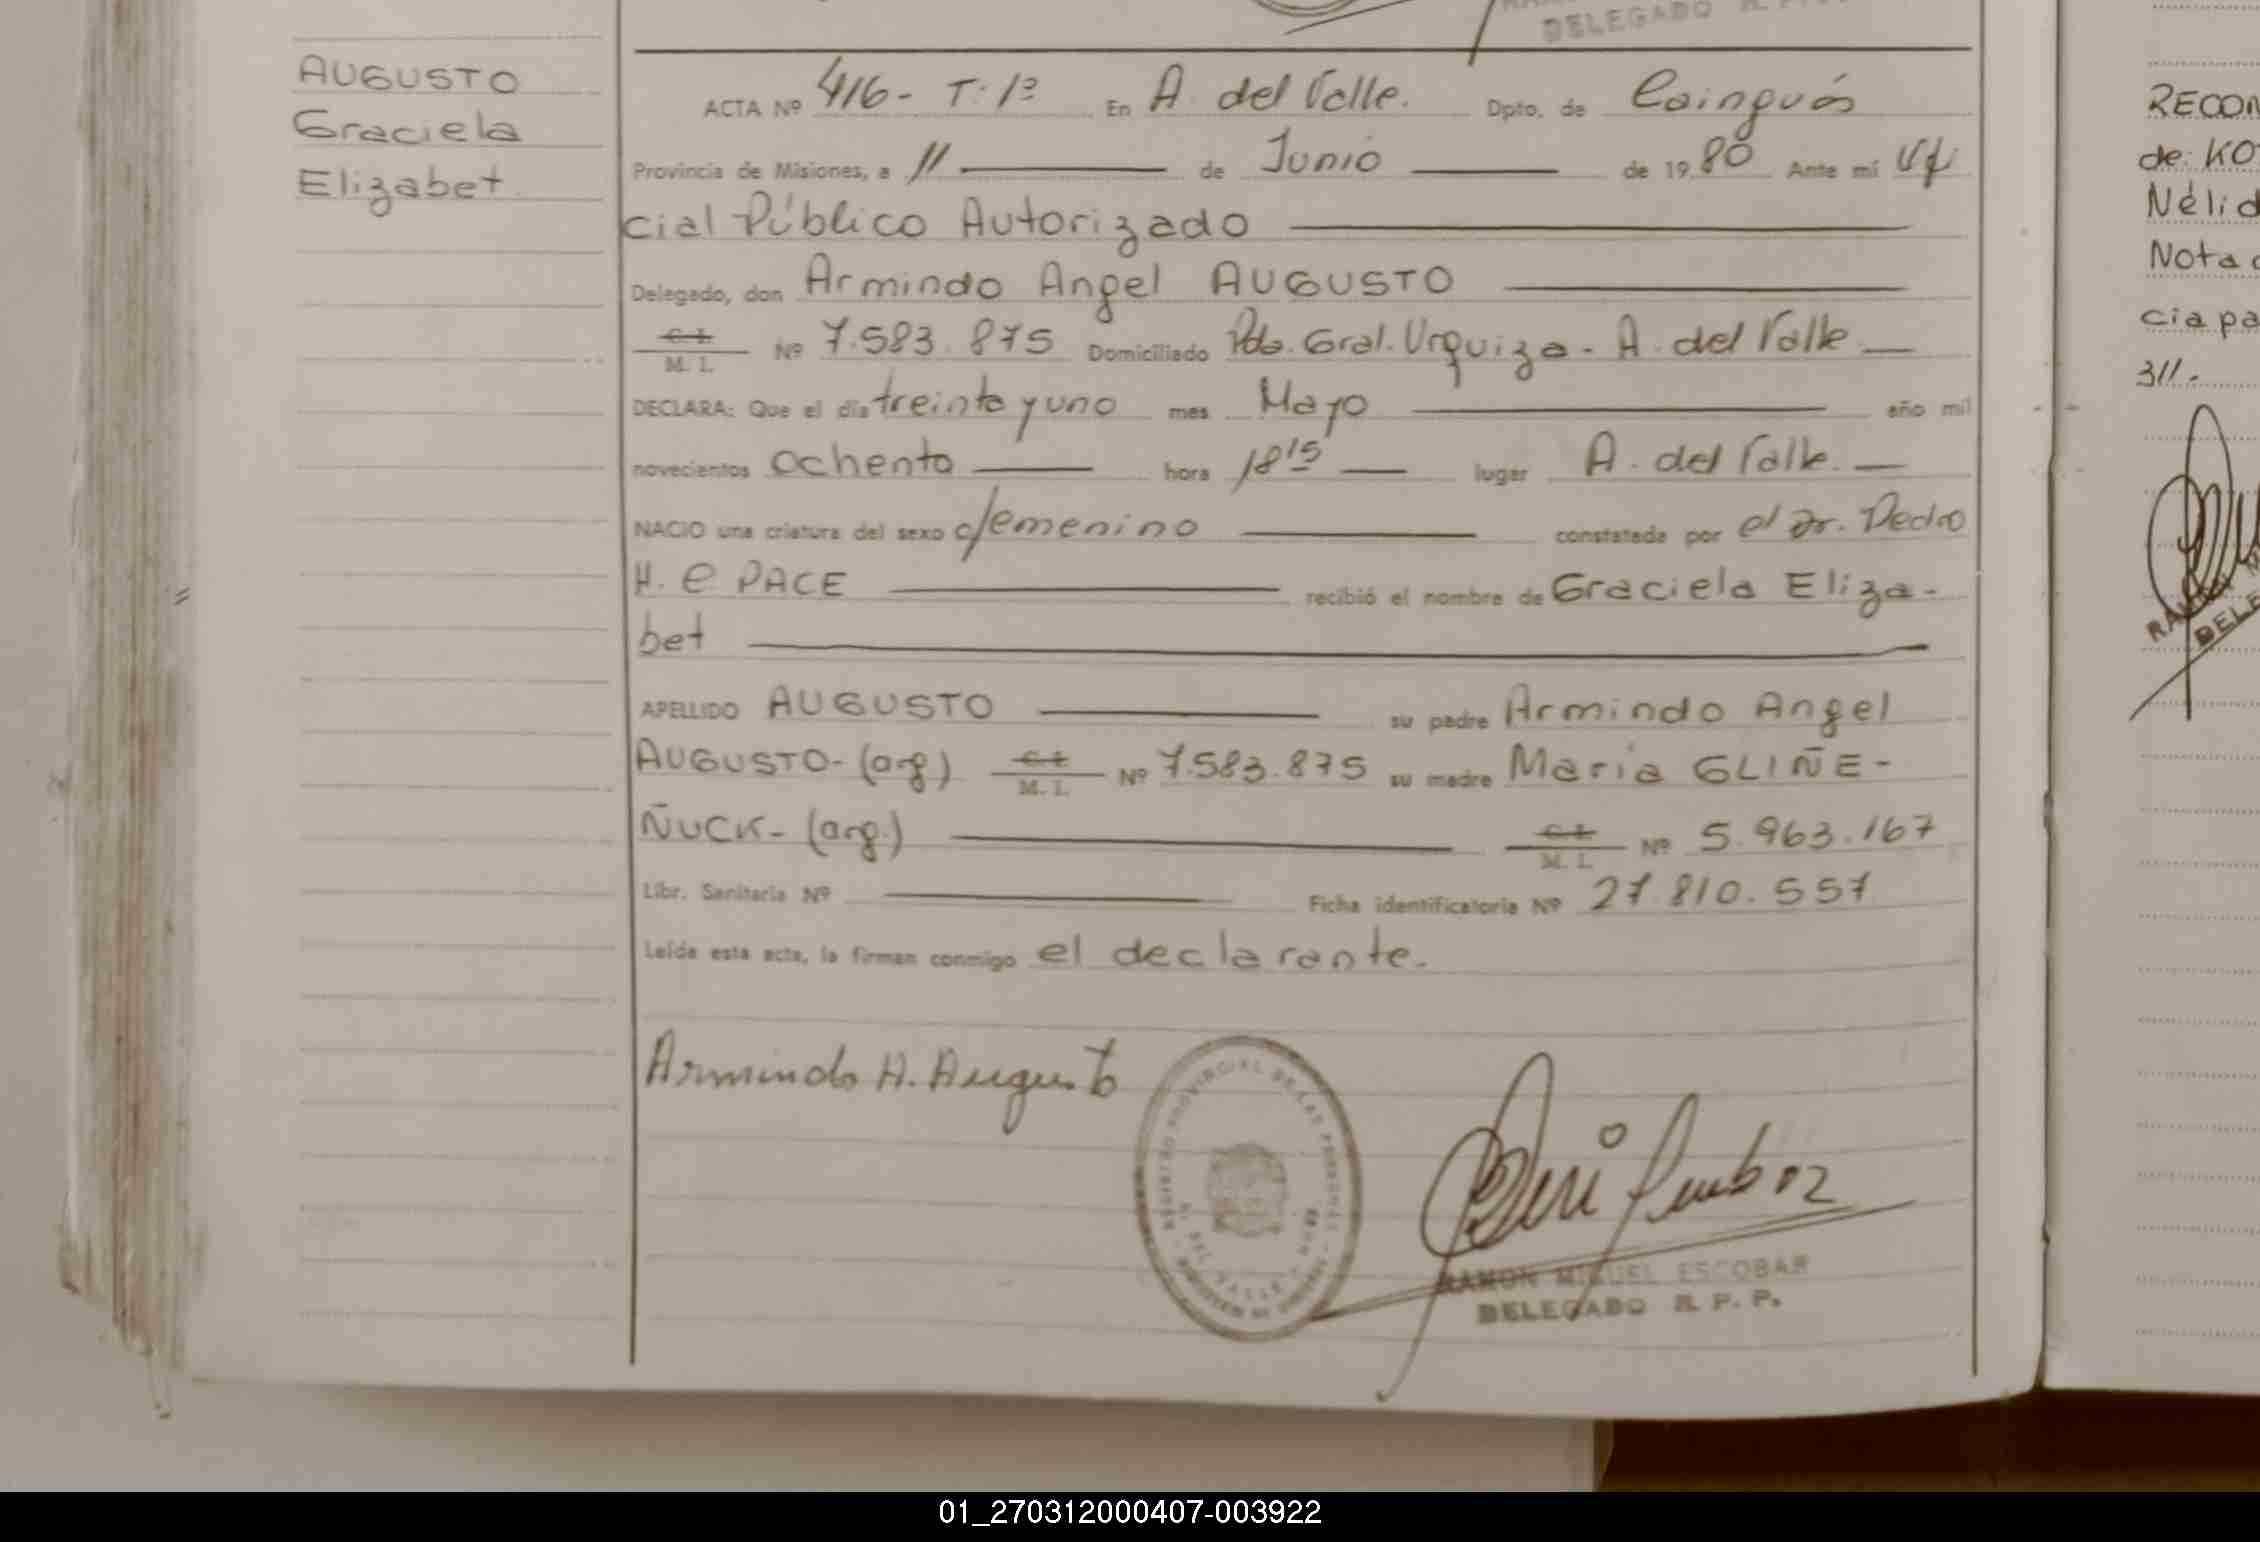 DELEGADO R. P. P.
AUGUSTO
Graciela
Elizabet
ACTA Nº 416- T: 1º En A. del Valle. Dpto. de Cainguás
Provincia de Misiones, a 11 de Junio de 1980 Ante mí Ofi
cial Público Autorizado
Delegado, don Armindo Angel AUGUSTO
C.I. M. I. Nº 7.583.875 Domiciliado Pdo. Gral. Urquiza - A. del Valle
DECLARA: Que el día treinta y uno mes Mayo año mil
novecientos ochenta hora 18 15 lugar A. del Valle.
NACIO una criatura del sexo femenino constatada por el Dr. Pedro
H. C PACE recibió el nombre de Graciela Eliza-
bet
APELLIDO AUGUSTO su padre Armindo Angel
AUGUSTO- (arg) C.I. M. I. Nº 7.583.875 su madre María GLIÑE-
ÑUCK- (arg.) C.I. M. I. Nº 5.963.167
Libr. Sanitaria Nº Ficha identificatoria Nº 27.810.557
Leída esta acta, la firman conmigo el declarante.
Armindo A. Augusto
REGISTRO PROVINCIAL DE LAS PERSONAS
A. DEL VALLE
RAMON MIGUEL ESCOBAR
DELEGADO R. P. P.
RECON
de KO
Nélid
Nota
cia pa
311.
RAMON M
DELE
01_270312000407-003922